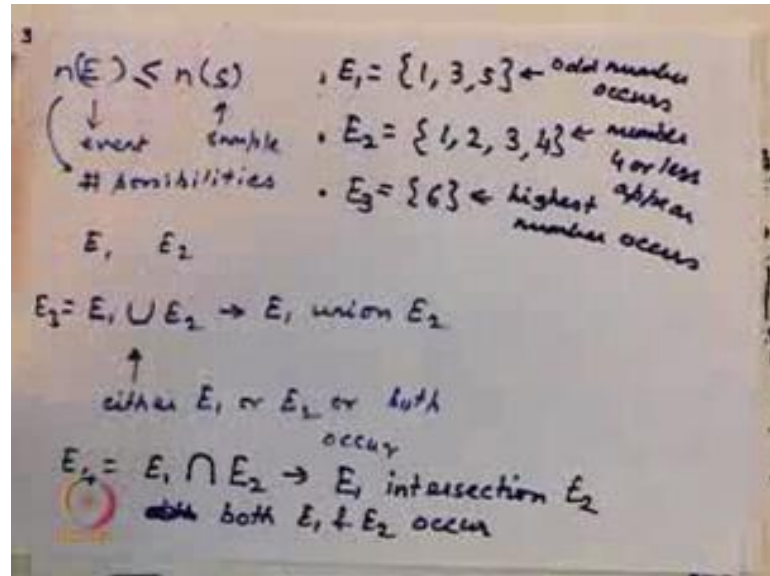 3
n(E) ≤ n(S)
↓ event ↑ sample
# possibilities
• E₁ = {1, 3, 5} ← odd number
occurs
• E₂ = {1, 2, 3, 4} ← number
4 or less
appear
• E₃ = {6} ← highest
number occurs
E₁ E₂
E₃ = E₁ ∪ E₂ → E₁ union E₂
↑
either E₁ or E₂ or both
occur
E₄ = E₁ ∩ E₂ → E₁ intersection E₂
both E₁ & E₂ occur